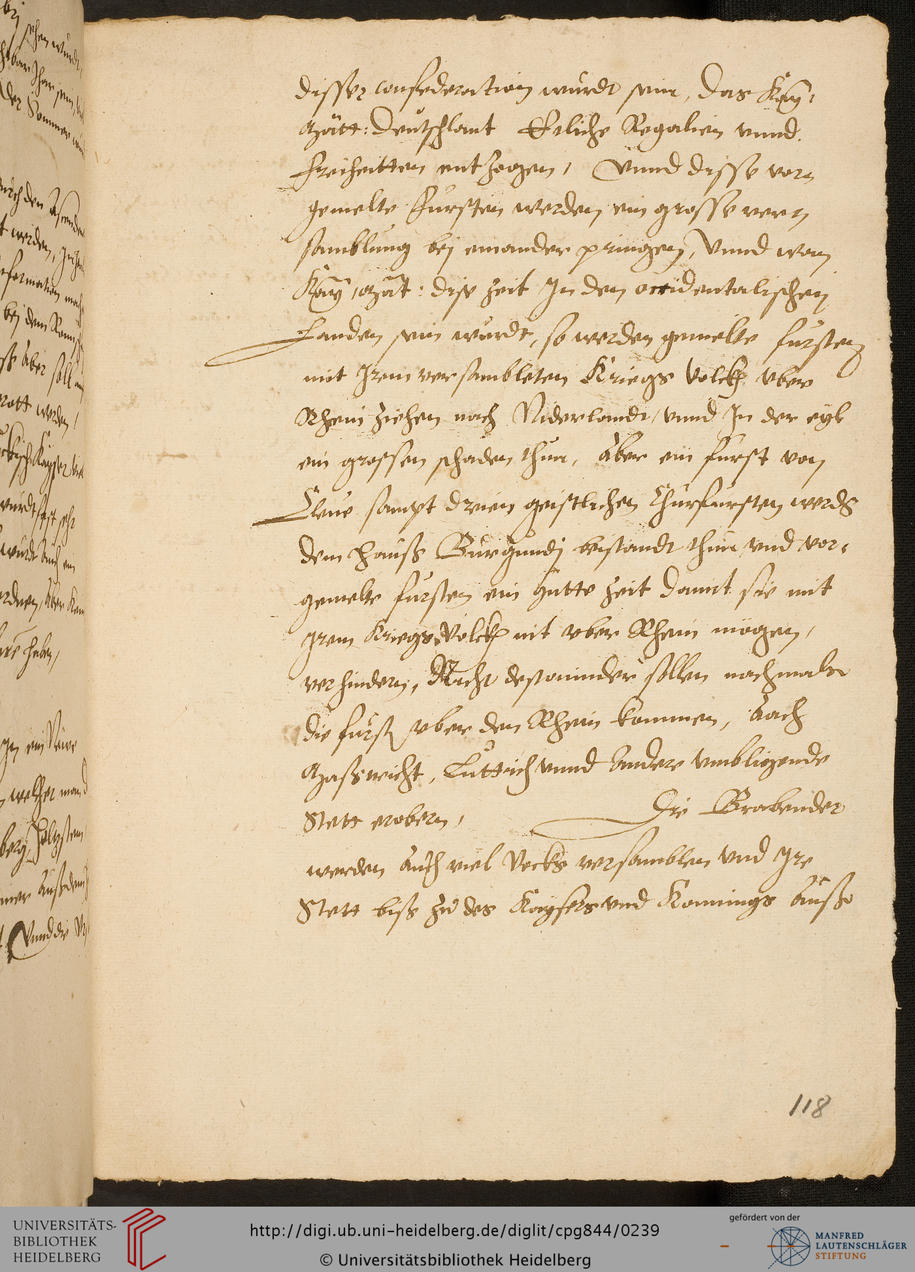 disser confederation wurdt sein, Das Kay:
Matt: Deutschlant Etliche Regalien vnnd
freiheitten entzogen, Vnnd disse vorn
gemelte fursten werden ein grosse vern
samblung bej einander pringen, Vnnd wan
Kay: Mat: dise Zeit In den occidentalischen
Landen sein wurdt, so werden gemelte fursten
mit Irem versambleten Kriegs Volckh vber
Rhein Ziehen nach Niderlandt, vnnd In der eyl
ein grossen schaden thun, Aber ein furst von
Cleue sampt dreien geistlichen Churfursten werdn
dem hauss Burgundj beistandt thun, vnd vor,
gemelte fursten ein gutte Zeit damit sie mit
Irem Kriegs Volckh nit vber Rhein mögen,
verhindern, Nicht destominder sollen nachmals
die furst vber den Rhein kommen, Auch
Mastricht, Luttich vnnd Andere vmbligende
Stett erobern, Die Brabender
werden Auch viel Vocks versamblen vnd Ire
Stett biss zu des Kaysers vnd Konnings Auss
118
UNIVERSITÄTS-
BIBLIOTHEK
HEIDELBERG
http://digi.ub.uni-heidelberg.de/diglit/cpg844/0239
© Universitätsbibliothek Heidelberg
gefördert von der
MANFRED
LAUTENSCHLÄGER
STIFTUNG